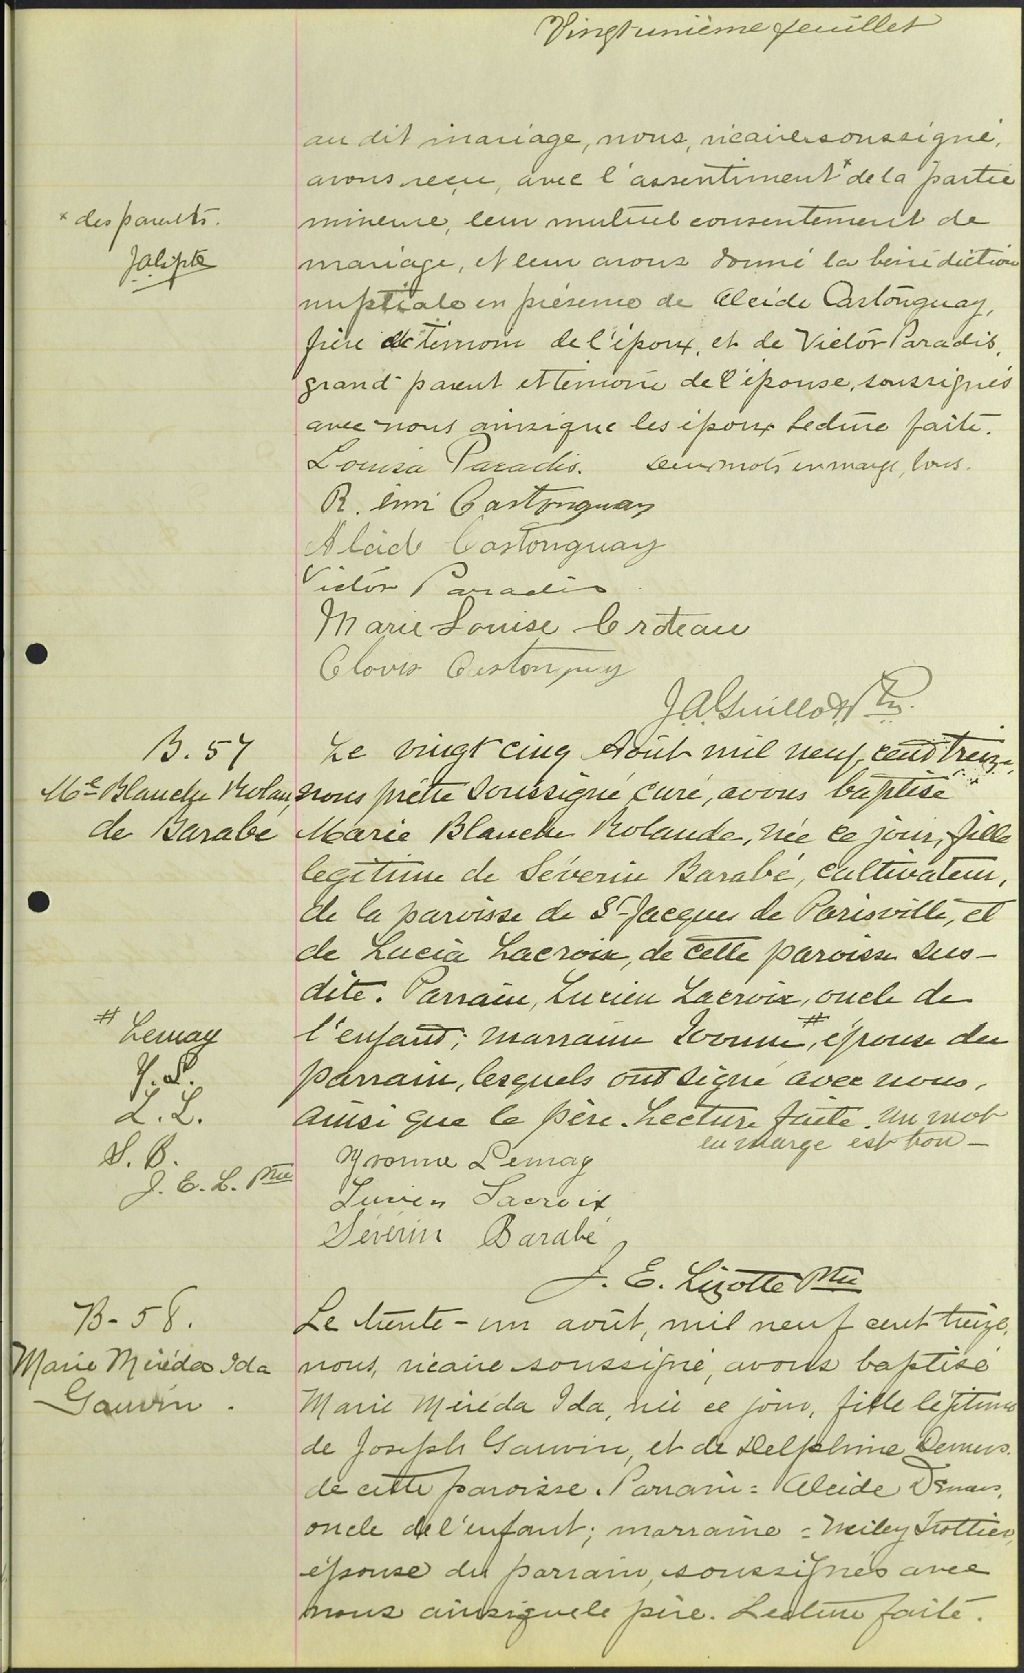 Vingt unième feuillet
au dit mariage, nous, vicaire soussigné,
avons reçu, avec l'assentiment * de la partie
* des parents.
mineure, leur mutuel consentement de
mariage, et leur avons donné la bénédiction
nuptiale en présence de Alcide Castonguay,
frère et témoin de l'époux, et de Victor Paradis,
grand-parent et témoin de l'épouse, soussignés
avec nous ainsi que les époux. Lecture faite.
Louisa Paradis. Deux mots en marge, bons.
R. émi Castonguay
Alcid Castonguay
Victor Paradis
Marie Louise Croteau
Clovis Castonguay
J. A. Ptre.
B. 57
Mie Blanche Rolan,
de Barabé
Le vingt cinq Août mil neuf cent treize,
nous prêtre soussigné, curé, avons baptisé
Marie Blanche Rolande, née ce jour, fille
légitime de Séverin Barabé, cultivateur,
de la paroisse de St-Jacques de Parisville, et
de Lucia Lacroix, de cette paroisse sus-
dite. Parrain, Lucien Lacroix, oncle de
l'enfant; marraine Ivonne #, épouse du
parrain, lesquels ont signé avec nous,
ainsi que le père. Lecture faite. Un mot
en marge est bon -
# Lemay
Y. L.
L. L.
S. B.
J. E. L. Ptre
Yvonne Lemay
Lucien Lacroix
Séverin Barabé
J. E. Lizotte Ptre
B - 58.
Marie Miréda Ida
Gauvin.
Le trente-un août, mil neuf cent treize,
nous, vicaire soussigné, avons baptisé
Marie Miréda Ida, née ce jour, fille légitime
de Joseph Gauvin, et de Delphine Demers,
de cette paroisse. Parrain = Alcide Demers,
oncle de l'enfant; marraine = Trottier,
épouse du parrain, soussignés avec
nous ainsi que le père. Lecture faite.